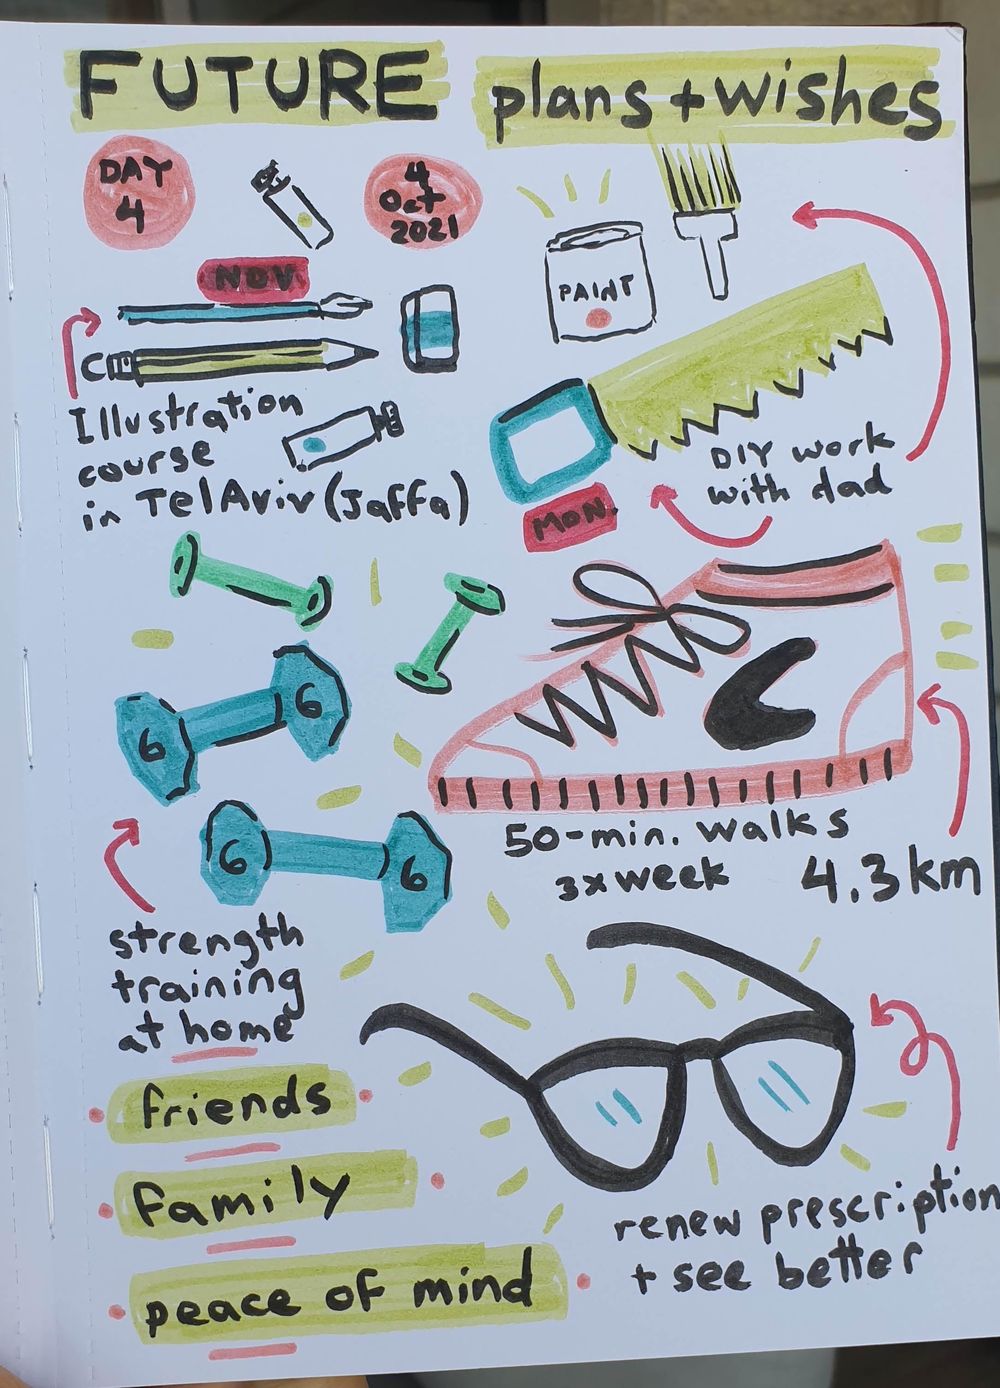 FUTURE
plans + wishes
DAY
4
4
Oct
2021
NOV.
Illustration
course
in Tel Aviv (Jaffa)
PAINT
DIY work
with dad
MON.
6
6
6
6
strength
training
at home
50-min. walks
3x week
4.3 km
friends
family
peace of mind
renew prescription
+ see better